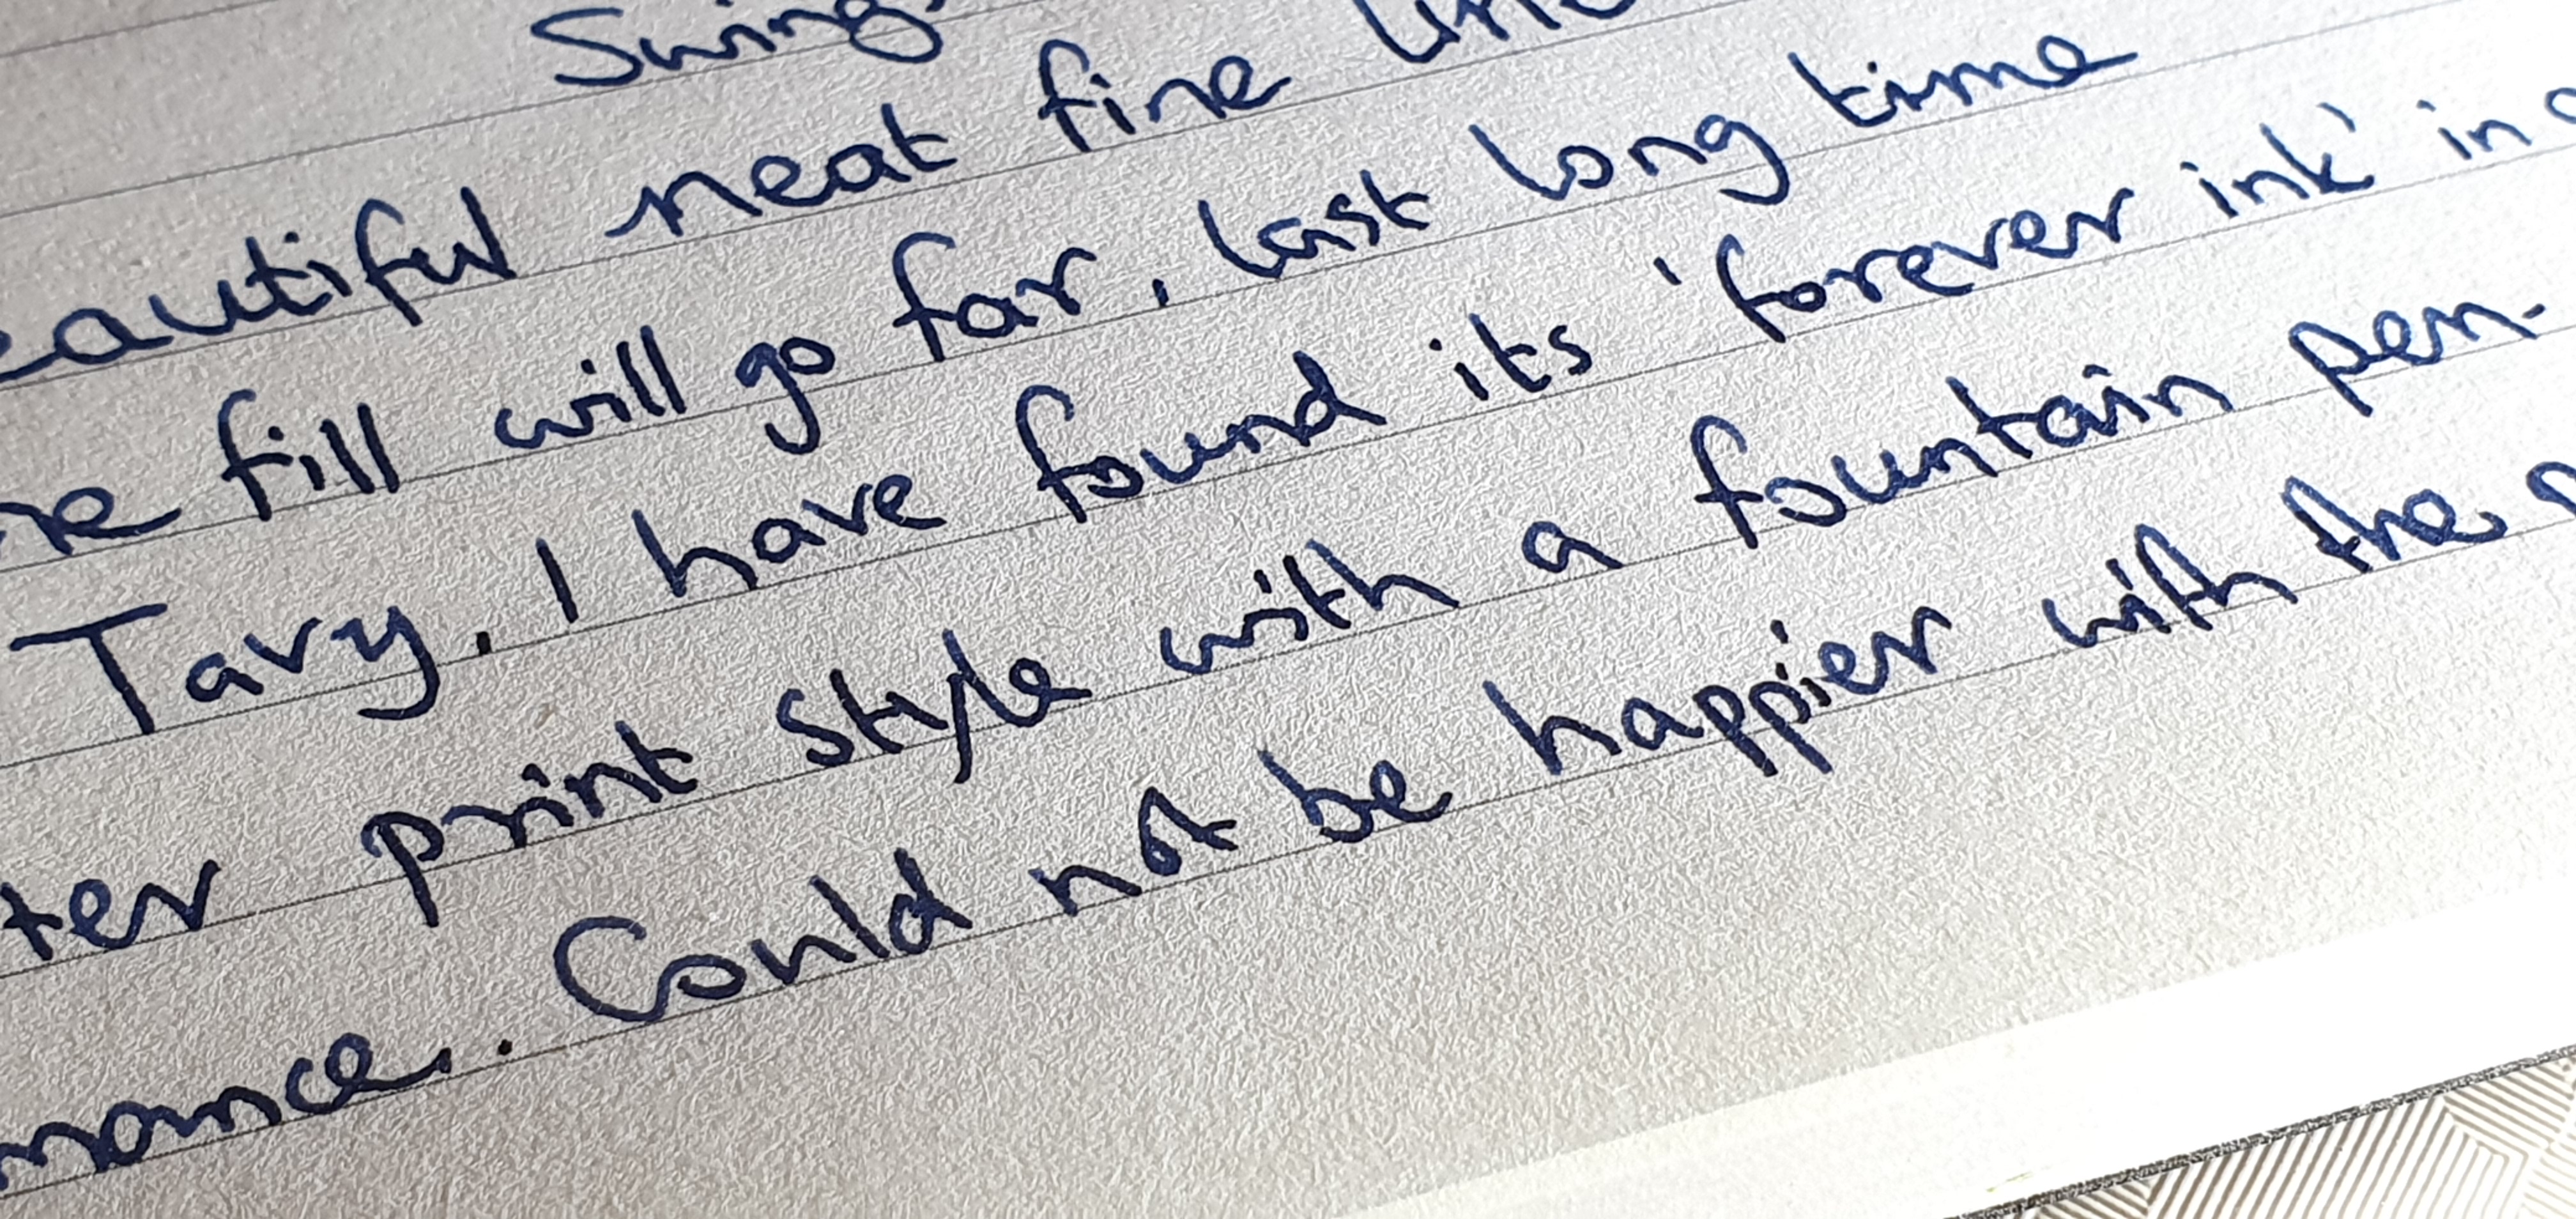 Swing.
eautiful neat fine line
ne fill will go far, last long time
Tavy. I have found its 'forever ink' in
ter print style with a fountain pen.
mance.. Could not be happier with the